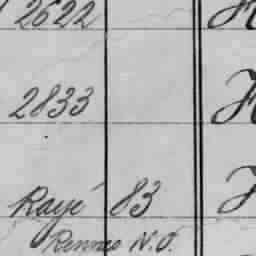 2622
2833
Rayé 83
Rennes N.O.